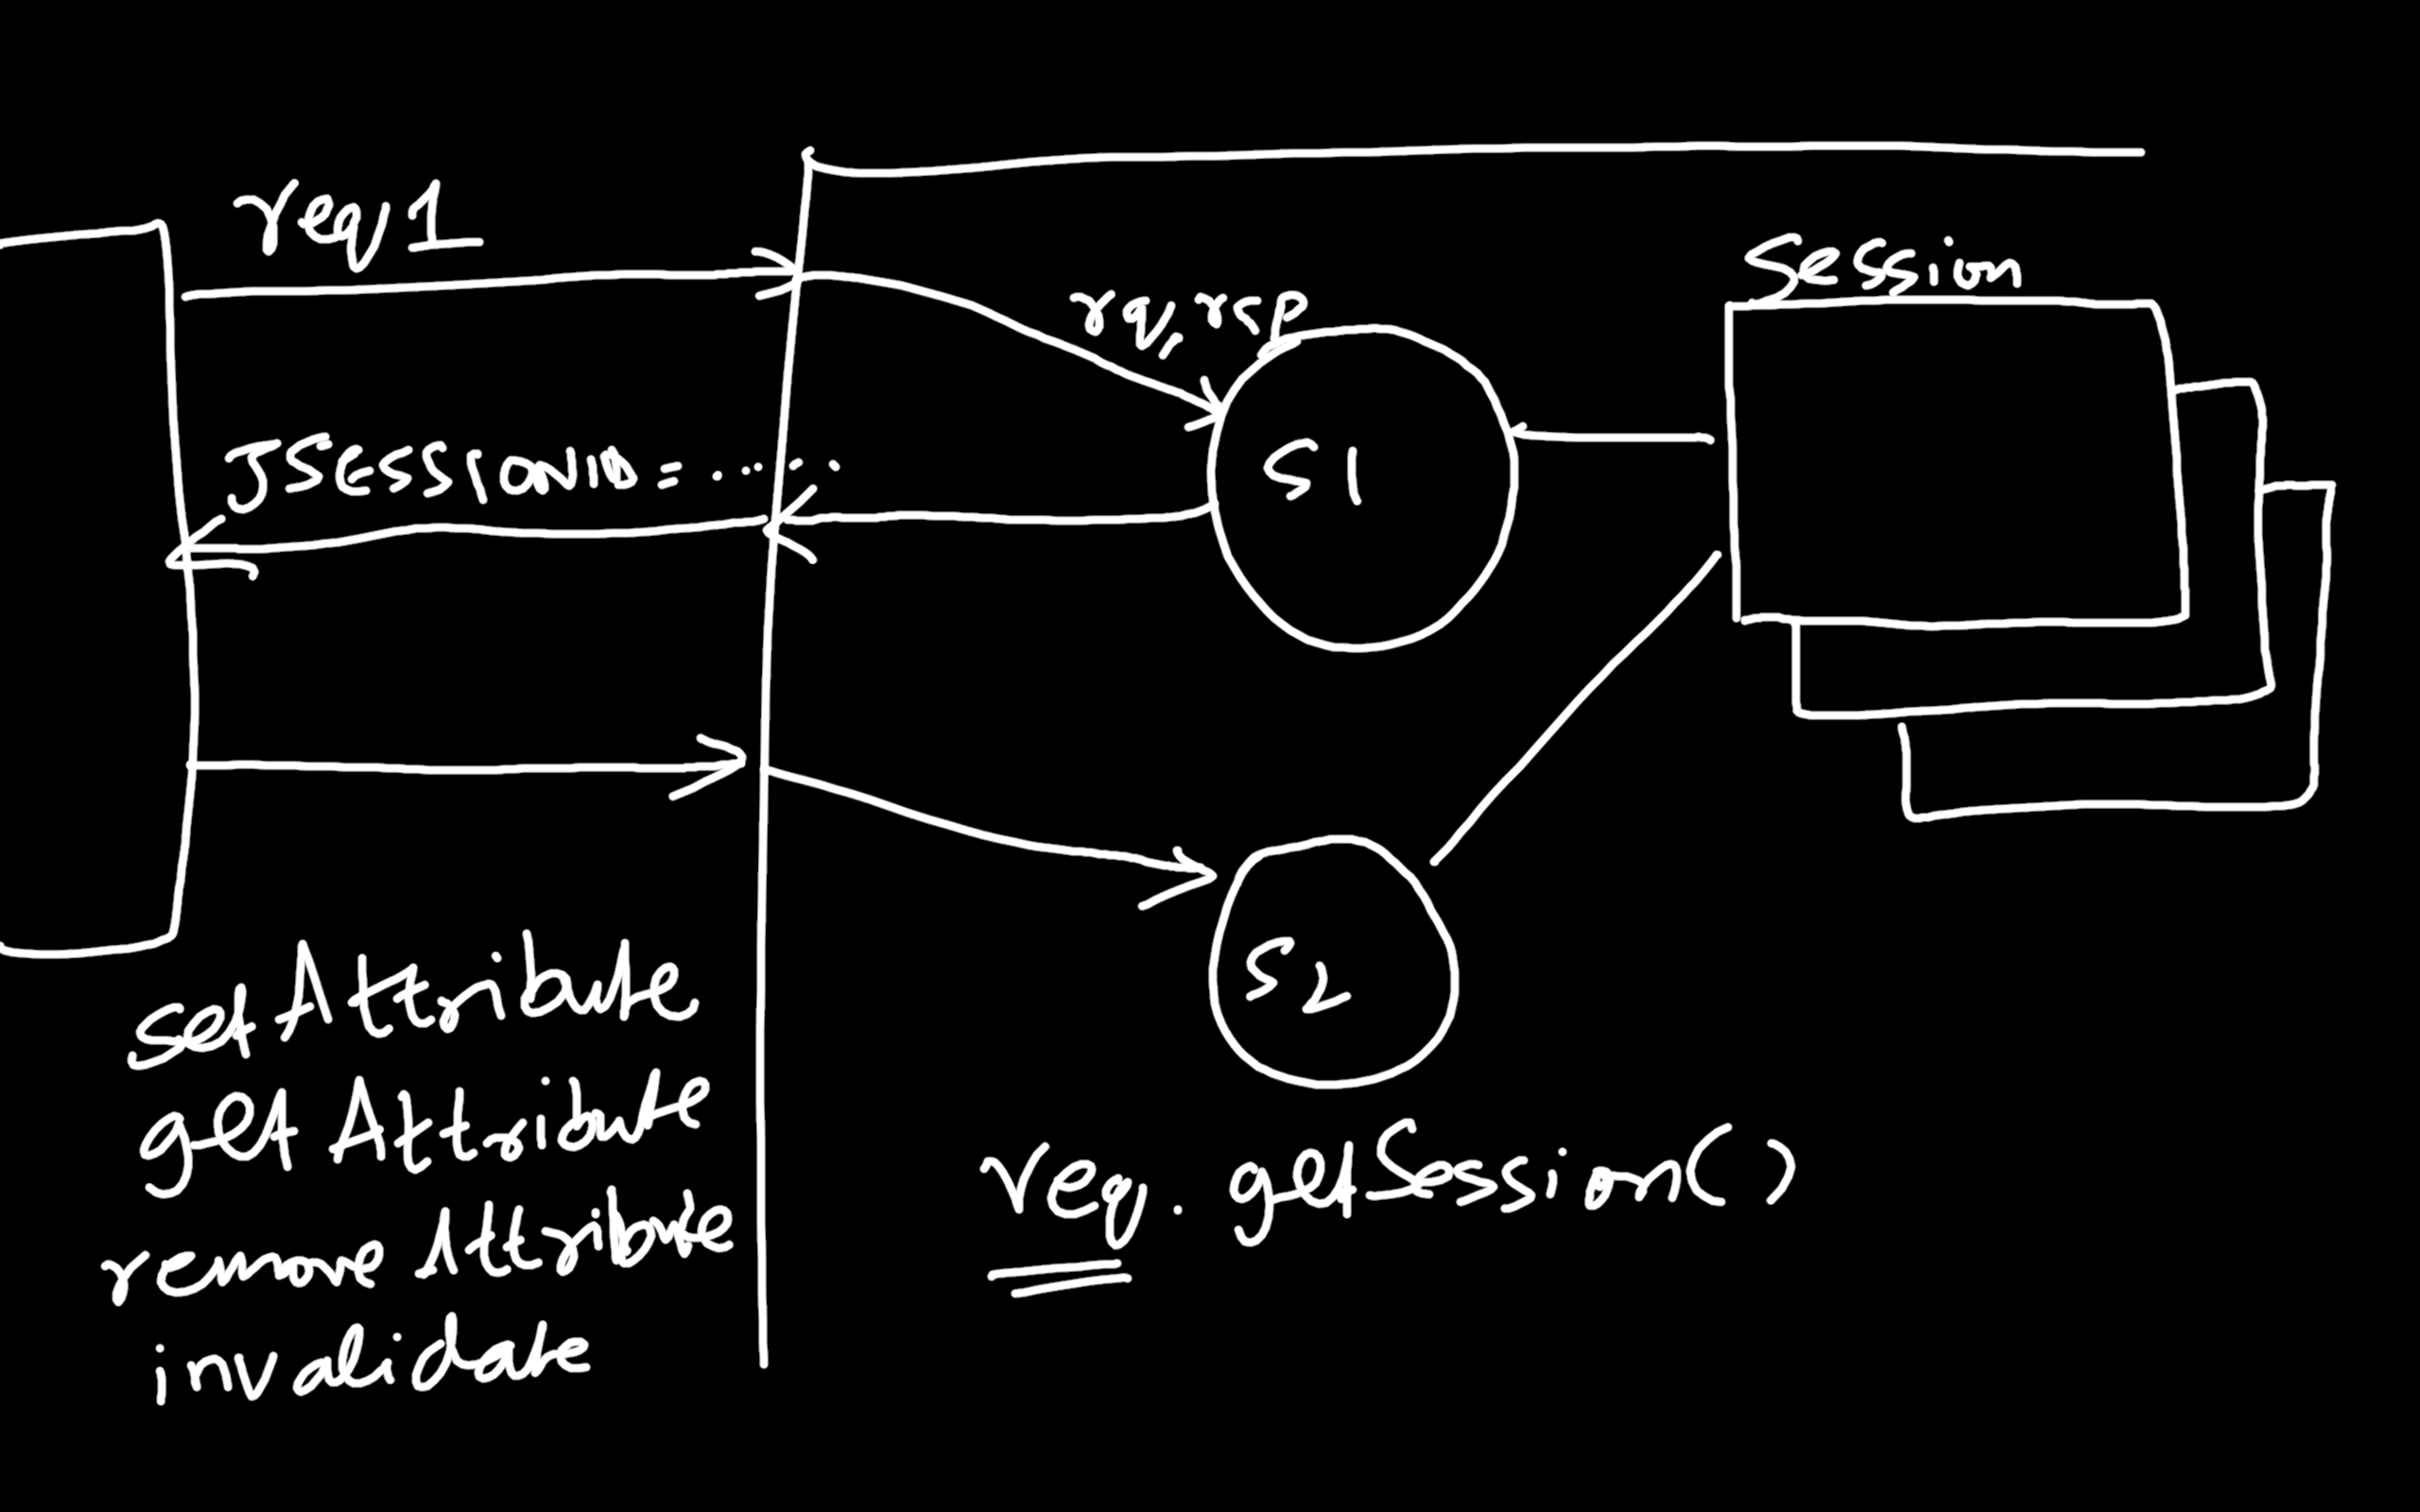 req 1
rq, rsp
Session
JSESSIONID = ......
S1
S2
setAttribute
getAttribute
removeAttribute
invalidate
req. getSession()